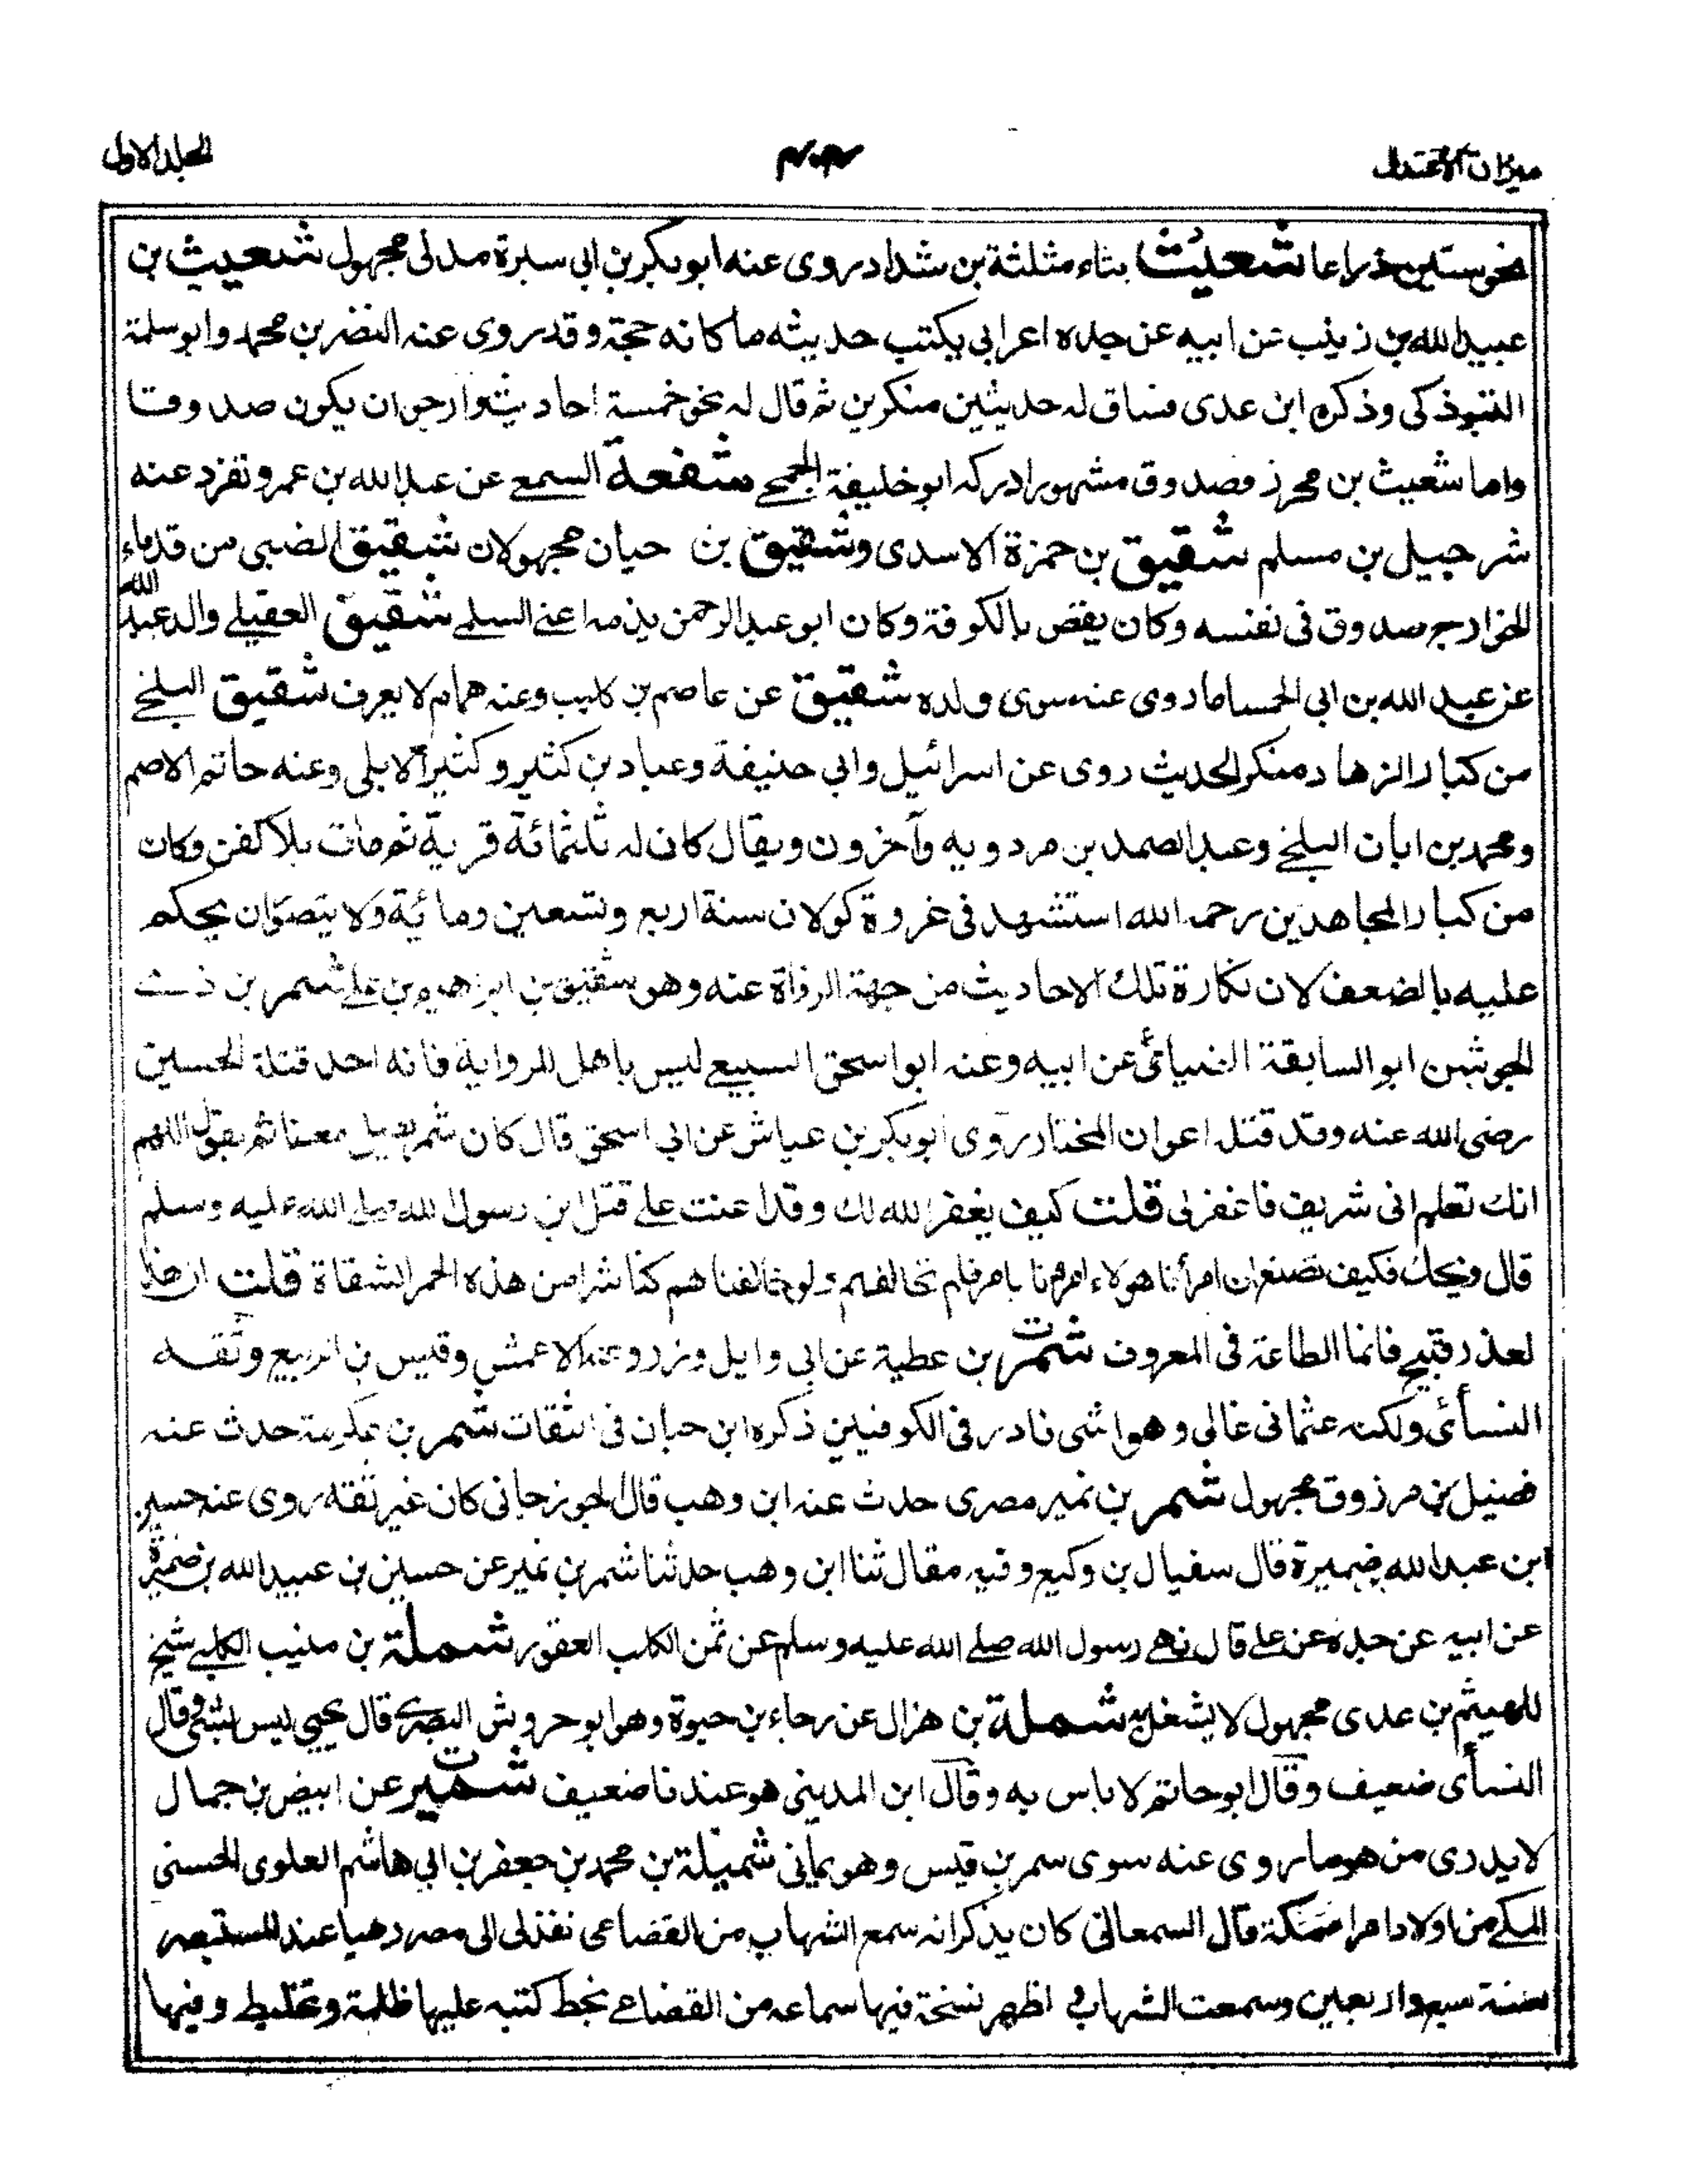 ميزان الاعتدال
الجلد الاول
نحو ستين ذراعا شعيث بثاء مثلثة بن شداد روى عنه ابو بكر بن ابى سبرة مدنى مجهول شعيث بن
عبيد الله بن زبيب عن ابيه عن جده اعرابى يكتب حديثه ما كانه حجة وقد روى عنه النضر بن محمد وابو سلمة
التبوذكى وذكره ابن عدى فساق له حديثين منكرين ثم قال له نحو خمسة احاديث وارجو ان يكون صدوقا
واما شعيث بن محرز فصدوق مشهور ادركه ابو خليفة الجمحى شفعة السمعى عن عبد الله بن عمرو تفرد عنه
شرحبيل بن مسلم شقيق بن حمزة الاسدى وشقيق بن حيان مجهولان شقيق الضبى من قدماء
الخوارج صدوق فى نفسه وكان يقص بالكوفة وكان ابو عبد الرحمن يذمه اعنى السلمى شقيق العقيلى والد عبد الله
عن عبد الله بن ابى الحمساء ما روى عنه سوى ولده شقيق عن عاصم بن كليب وعنه همام لا يعرف شقيق البلخى
من كبار الزهاد منكر الحديث روى عن اسرائيل وابى حنيفة وعباد بن كثير وكثير الابلى وعنه حاتم الاصم
ومحمد بن ابان البلخى وعبد الصمد بن مردويه وآخرون ويقال كان له ثلثمائة قرية ثم مات بلا كفن وكان
من كبار المجاهدين رحمه الله استشهد فى غزوة كولان سنة اربع وتسعين ومائية ولا يتصوّران يحكم
عليه بالضعف لان نكارة تلك الاحاديث من جهة الرواة عنه وهو شقيق بن ابراهيم بن على شمر بن ذى
الجوشن ابو السابقة الضبابى عن ابيه وعنه ابو اسحق السبيعى ليس باهل للرواية فانه احد قتلة الحسين
رضى الله عنه وقد قتله اعوان المختار روى ابو بكر بن عياش عن ابى اسحق قال كان شمر يصلى معنا ثم يقول اللهم
انك تعلم انى شريف فاغفر لى قلت كيف يغفر الله لك وقد اعنت على قتل ابن رسول الله صلى الله عليه وسلم
قال ويحك فكيف نصنع ان امرأنا هولاء امرونا بامر فلم نخالفهم ولو خالفناهم كنا شرا من هذه الحمر الشقاة قلت ان هذا
لعذر قبيح فانما الطاعة فى المعروف شمر بن عطية عن ابى وايل وزر وعنه الاعمش وقيس بن الربيع وثقه
النسأى ولكنه عثمانى غالى وهواشى نادر فى الكوفيين ذكره ابن حبان فى الثقات شمر بن عكرمة حدث عنه
فضيل بن مرزوق مجهول شمر بن نمير مصرى حدث عنه ابن وهب قال الجوزجانى كان غير ثقه روى عنه حسين
ابن عبد الله ضميرة قال سفيال بن وكيع وفيه مقال ثنا ابن وهب حدثنا شمر بن نمير عن حسين بن عبيد الله بن ضميرة
عن ابيه عن جده عن على قال نهى رسول الله صلى الله عليه وسلم عن ثمن الكلب العقور شملة بن منيب الكلبى شيخ
للهيثم بن عدى مجهول لا يشغل به شملة بن هزال عن رجاء بن حيوة وهو ابو حروش البصرى قال يحيى ليس بشئ وقال
النسأى ضعيف وقال ابو حاتم لا باس به وقال ابن المدينى هو عندنا ضعيف شمير عن ابيض بن جمال
لا يدرى من هو ما روى عنه سوى سمر بن قيس وهو يمانى شميلة بن محمد بن جعفر بن ابى هاشم العلوى الحسنى
المكى من اولاد امرا مكة قال السمعانى كان يذكر انه سمع الشهاب من القضاعى نفذ لى الى مصر عند المستبصر
سنة سبع واربعين وسمعت الشهاب اظهر نسخة فيها سماعه من القضاعى بخط كتبه عليها ظلمة وتخليط وفيها